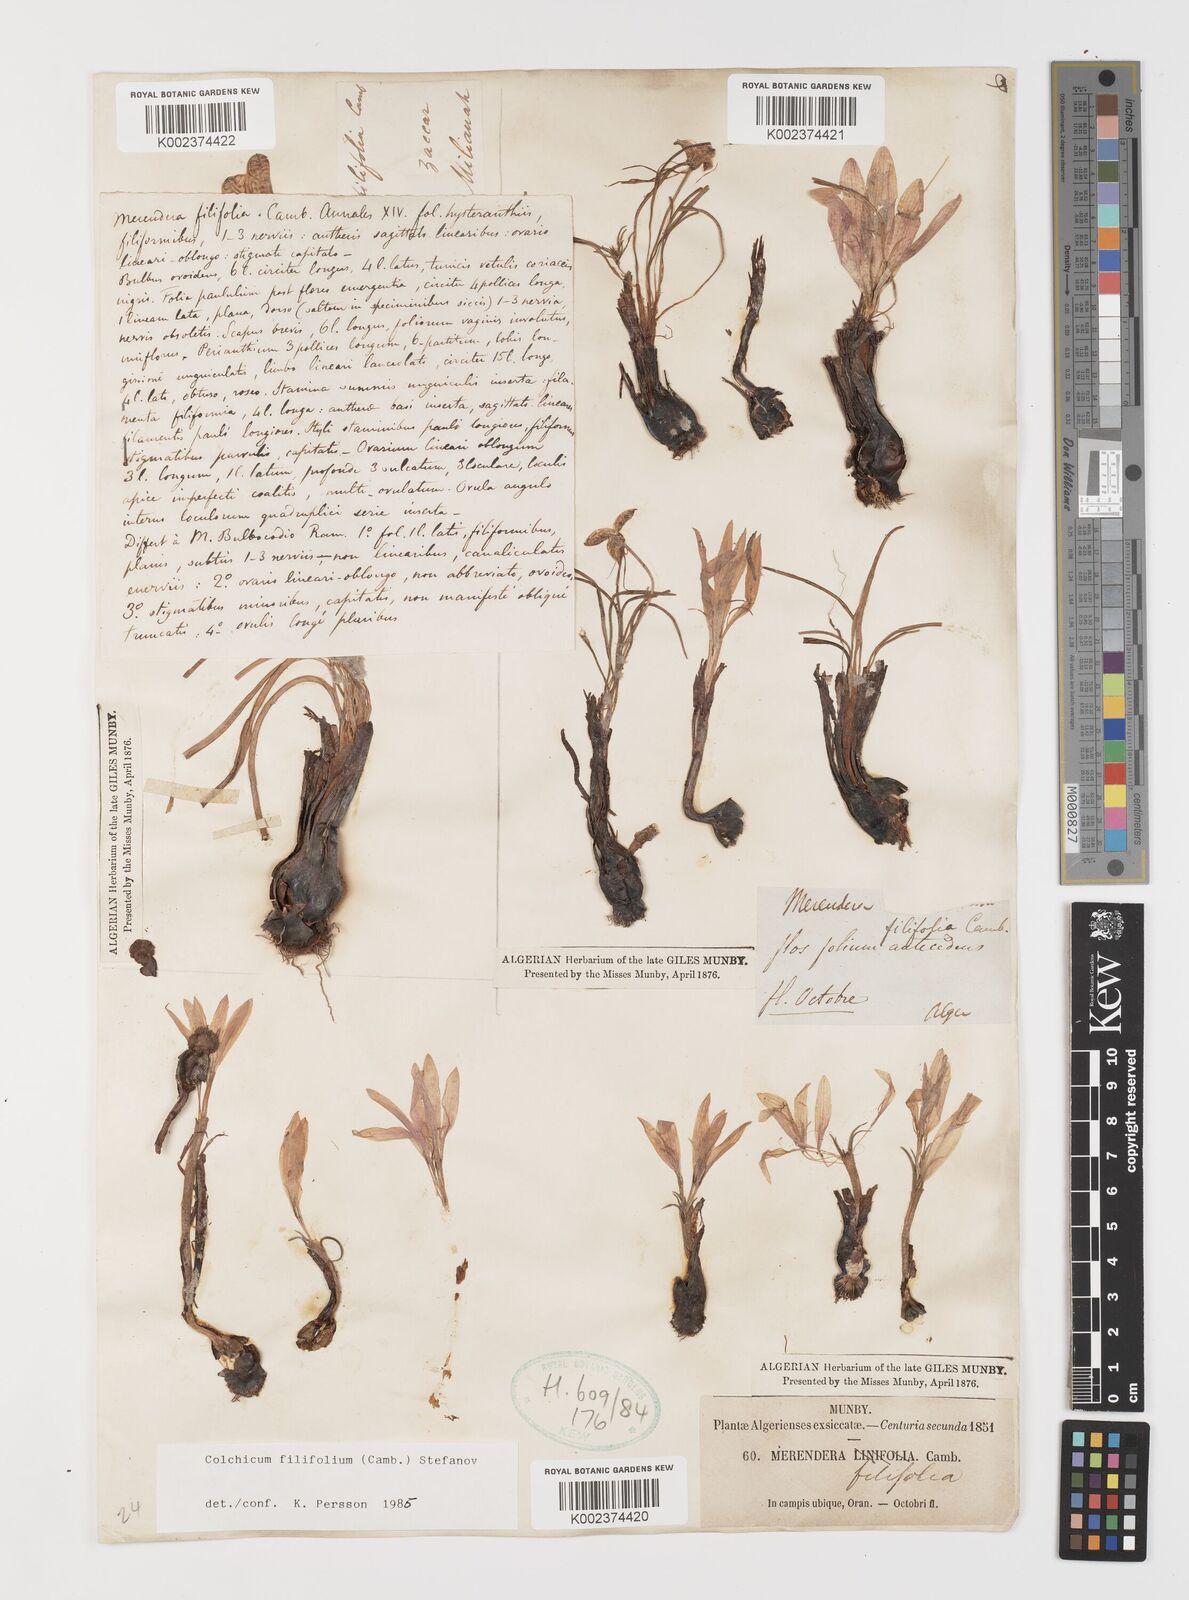 ROYAL BOTANIC GARDENS KEW
K002374422
ROYAL BOTANIC GARDENS KEW
K002374421
filifolia Camb
Zaccar
Milianah
Merendera filifolia. Camb. Annales XIV. fol. hysteranthiis,
filiformibus, 1-3 nerviis: antheris sagittatis linearibus: ovario
lineari-oblongo: stigmate capitato—
Bulbus ovoideus, 6 l. circiter longus, 4 l. latus, tunicis vetulis coriaceis
nigris. Folia paululum post flores emergentia, circiter 4 pollices longa,
1 lineam lata, plana, dorso (saltem in speciminibus siccis) 1-3 nervia,
nervis obsoletis. Scapus brevis, 6 l. longus, foliorum vaginis involutus,
uniflorus. Perianthium 3 pollices longum, 6-partitum, lobis lon-
gissimè unguiculatis, limbo lineari lanceolato, circiter 15 l. longo,
4 l. lato, obtuso, roseo. Stamina summis unguiculis inserta: fila-
menta filiformia, 4 l. longa: antherae basi inserta, sagittato-lineares
filamentis paulò longiores. Styli staminibus paulò longiores, filiformes
stigmatibus parvulis, capitatis— Ovarium lineari oblongum
3 l. longum, 1 l. latum, profonde 3 sulcatum, 3 loculare, loculis
apice imperfecti coalitis, multi-ovulatum. Ovula angulo
interno loculorum quadruplici serie inserta—
Differt à M. Bulbocodio Ram. 1º fol. 1 l. latis, filiformibus,
planis, subtus 1-3 nerviis—non linearibus, canaliculatis
enerviis: 2º ovario lineari-oblongo, non abbreviato, ovoideo,
3º stigmatibus minoribus, capitatis, non manifestè obliquè
truncatis, 4º ovulis longè pluribus
ALGERIAN Herbarium of the late GILES MUNBY.
Presented by the Misses Munby, April 1876.
ALGERIAN Herbarium of the late GILES MUNBY.
Presented by the Misses Munby, April 1876.
Merendera
filifolia Camb.
flos folium antecedens
fl. Octobre
Alger
ROYAL BOTANIC GARDENS
H. 609/84
176
KEW
ALGERIAN Herbarium of the late GILES MUNBY.
Presented by the Misses Munby, April 1876.
MUNBY.
Plantæ Algerienses exsiccatæ.—Centuria secunda 1851
60. MERENDERA LINIFOLIA. Camb.
filifolia
In campis ubique, Oran. — Octobri fl.
Colchicum filifolium (Camb.) Stefanov
det./conf. K. Persson 1985
24
ROYAL BOTANIC GARDENS KEW
K002374420
Don Williams
M000827
centimetres
Kew
Royal Botanic Gardens
copyright reserved
0 1 2 3 4 5 6 7 8 9 10
cm